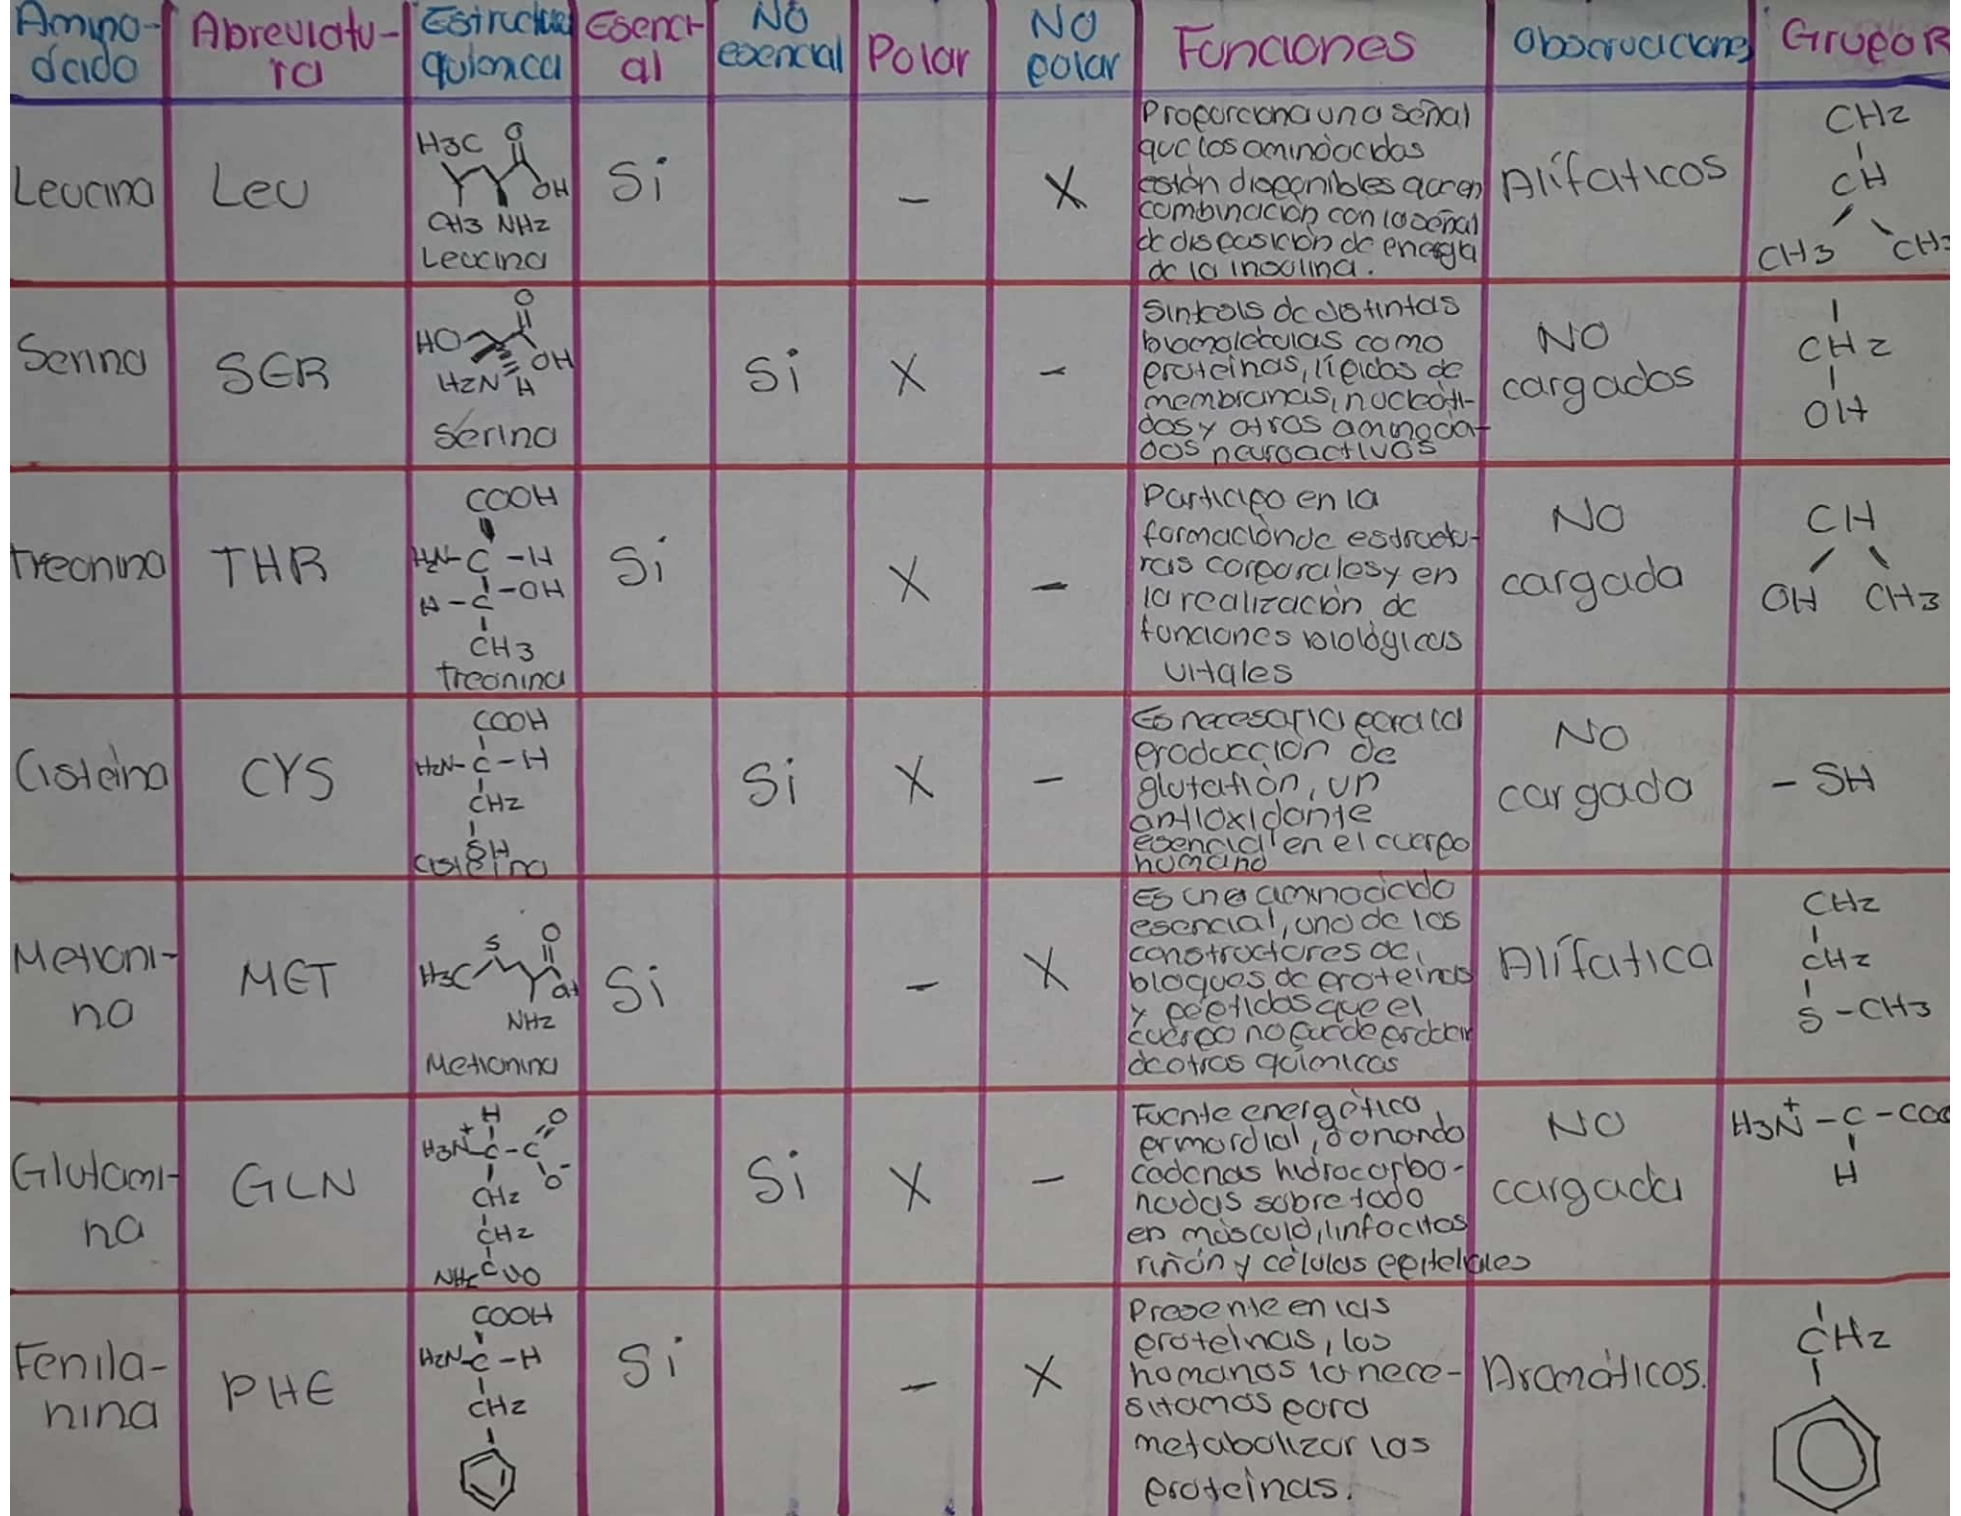 Amino-
ácido
Abreviatu-
ra
Estructura
química
Esenci-
al
NO
esencial
Polar
NO
polar
Funciones
Observaciones
Grupo R
Leucina
Leu
H3C
O
OH
CH3 NH2
Leucina
Si
-
X
Proporciona una señal
que los aminoácidos
están disponibles que en
combinación con la señal
de disposición de energia
de la insulina.
Alífaticos
CH2
CH
CH3 CH3
Serina
SER
O
HO
OH
H2N H
Serina
Si
X
-
Sintesis de distintas
biomoleculas como
proteínas, lípidos de
membranas, nucleóti-
dos y otros aminoáci-
dos neuroactivos
NO
cargados
CH2
OH
Treonina
THR
COOH
H2N-C-H
H-C-OH
CH3
Treonina
Si
X
-
Participo en la
formaciónde estructu-
ras corporales y en
la realización de
funciones biológicas
vitales
NO
cargada
CH
OH CH3
Cisteina
CYS
COOH
H2N-C-H
CH2
SH
Cisteina
Si
X
-
Es necesaria para la
producción de
glutatión, un
antioxidante
esencial en el cuerpo
humano
NO
cargada
- SH
Metioni-
na
MET
S O
H3C OH
NH2
Metionina
Si
-
X
Es un aminoácido
esencial, uno de los
constructores de
bloques de proteínas
y péptidos que el
cuerpo no puede producir
de otros químicos
Alífatica
CH2
CH2
S-CH3
Glutami-
na
GLN
H O
H3N+-C-C
O-
CH2
CH2
C
Si
X
-
Fuente energética
primordial, donando
cadenas hidrocarbo-
nadas sobre todo
en músculo, linfocitos
riñón y células epiteliales
NO
cargada
H3N+-C-COO
H
Fenila-
nina
PHE
COOH
H2N-C-H
CH2
Si
-
X
Presente en las
proteínas, los
humanos la nece-
sitamos para
metabolizar las
proteínas.
Aromáticos.
CH2